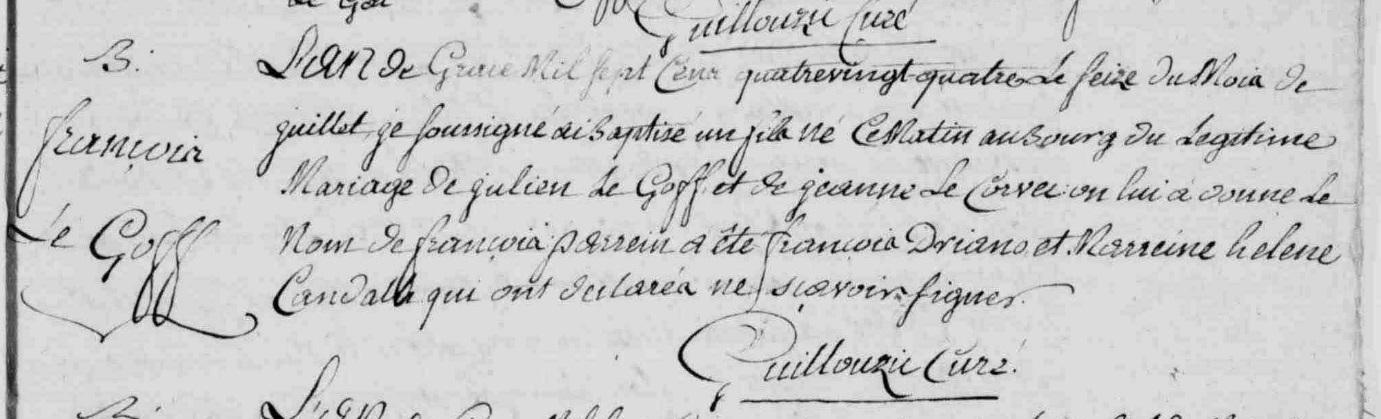 Guillouzic Curé
B.
françois
Le Goff
L'an de Grace Mil sept Cent quatrevingt quatre Le seize du Mois de
juillet, je soussigné ai Baptisé un fils né Ce Matin au Bourg du Legitime
Mariage de julien Le Goff et de jeanne Le Corvec : on lui a donné Le
Nom de françois parrein a été françois Driano et Marreine helene
qui ont declarés ne sçavoir signer.
Guillouzic Curé.
L'an de